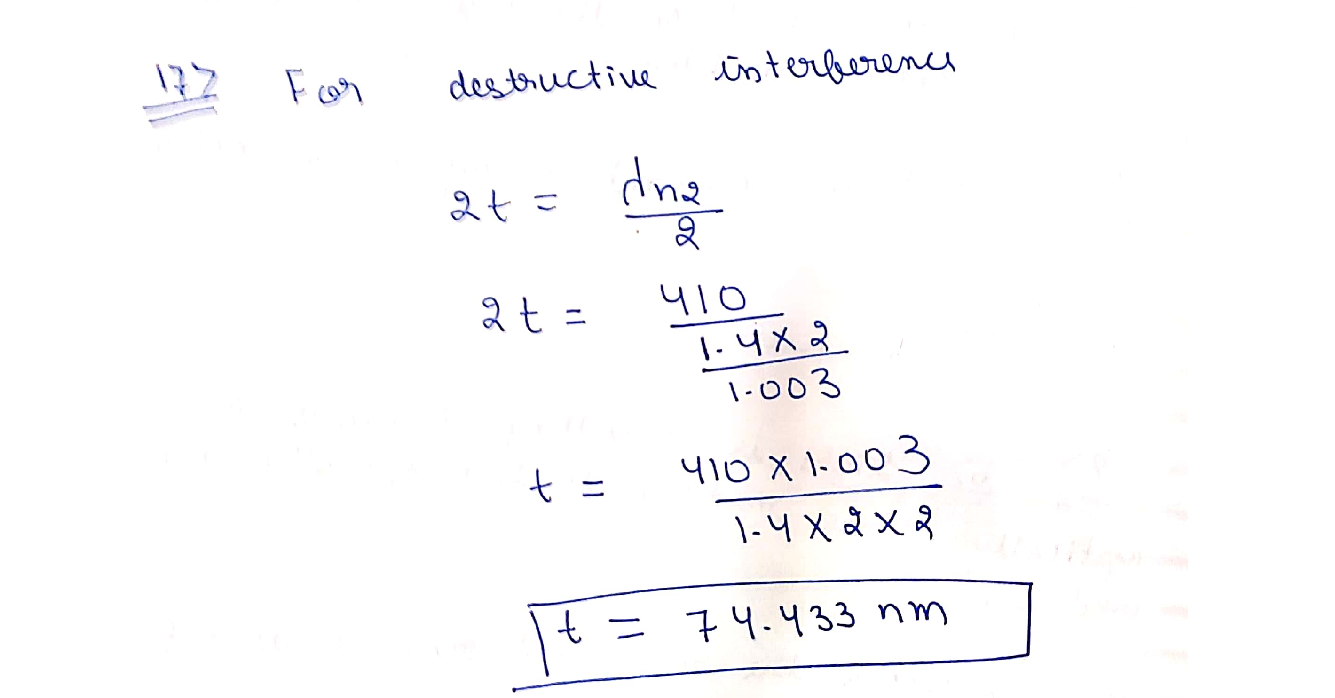 17> For destructive interference
2t = dn2 / 2
2t = 410 / 1.4 x 2 / 1.003
t = 410 x 1.003 / 1.4 x 2 x 2
t = 74.433 nm